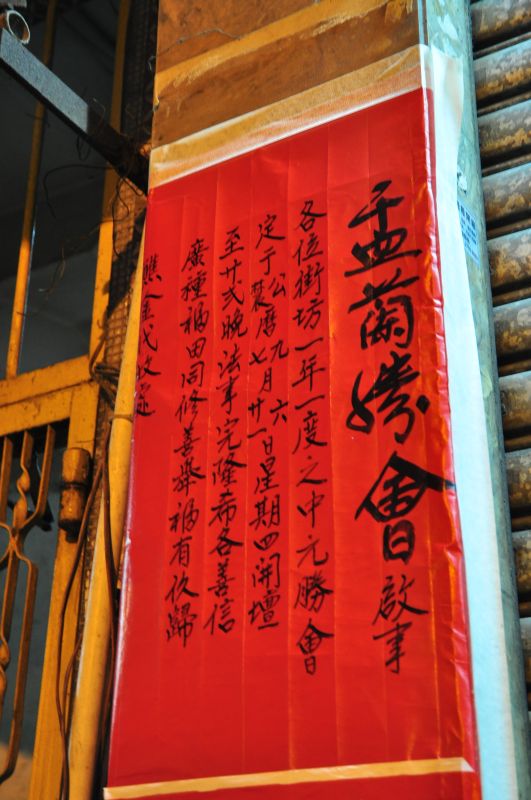 盂蘭勝會啟事
各位街坊一年一度之中元勝會
定于公梵曆九七月六廿一日星期四開壇
至廿弍晚法事完隆希各善信
廣種福田同修善舉福有攸歸
醮金代收處